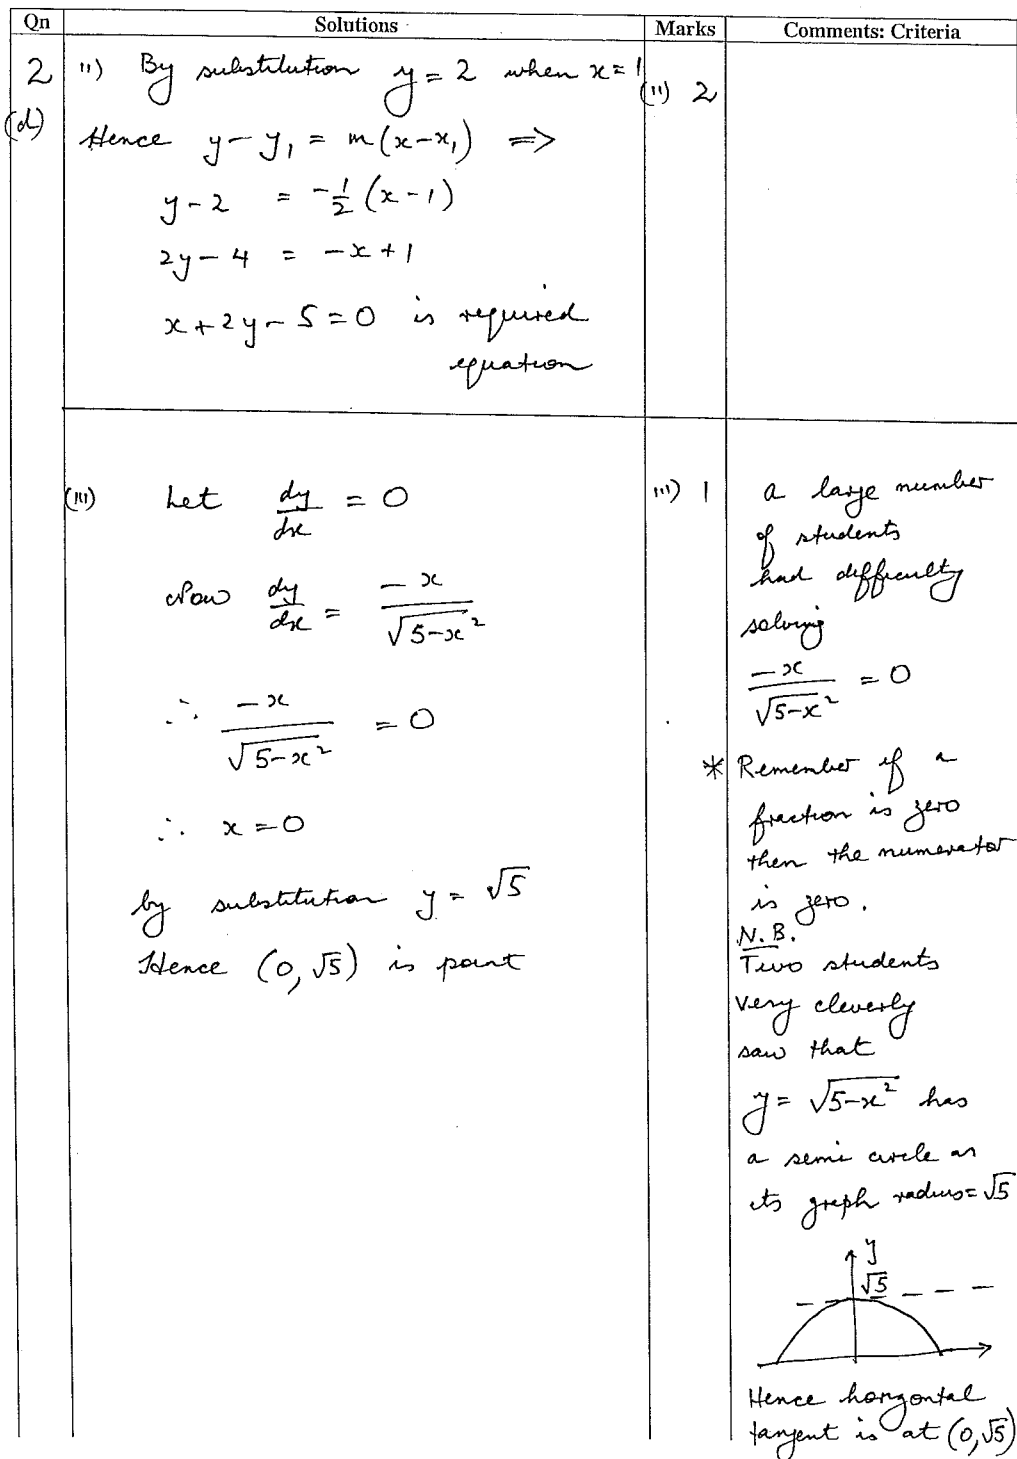 Qn Solutions Marks Comments: Criteria
2 (d)
ii) By substitution y = 2 when x = 1
Hence y - y₁ = m(x - x₁) ⇒
y - 2 = -½ (x - 1)
2y - 4 = -x + 1
x + 2y - 5 = 0 is required
equation
(ii) 2
(iii) Let dy/dx = 0
Now dy/dx = -x/√(5-x²)
∴ -x/√(5-x²) = 0
∴ x = 0
by substitution y = √5
Hence (0, √5) is point
iii) 1
a large number
of students
had difficulty
solving
-x/√(5-x²) = 0
* Remember if a
fraction is zero
then the numerator
is zero.
N.B.
Two students
very cleverly
saw that
y = √(5-x²) has
a semi circle as
its graph radius = √5
y
√5
Hence horizontal
tangent is at (0, √5)